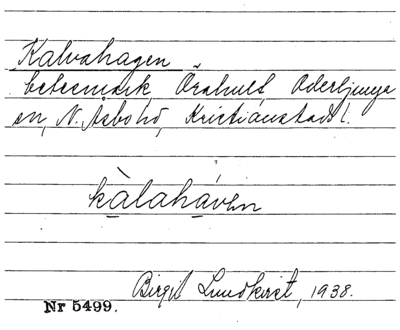 Kalvahagen
betesmark Örahult, Oderljunga
sn, N. Åsbo hd, Kristianstads l.
kàlahávən
Birgit Lundkvist, 1938.
Nr 5499.